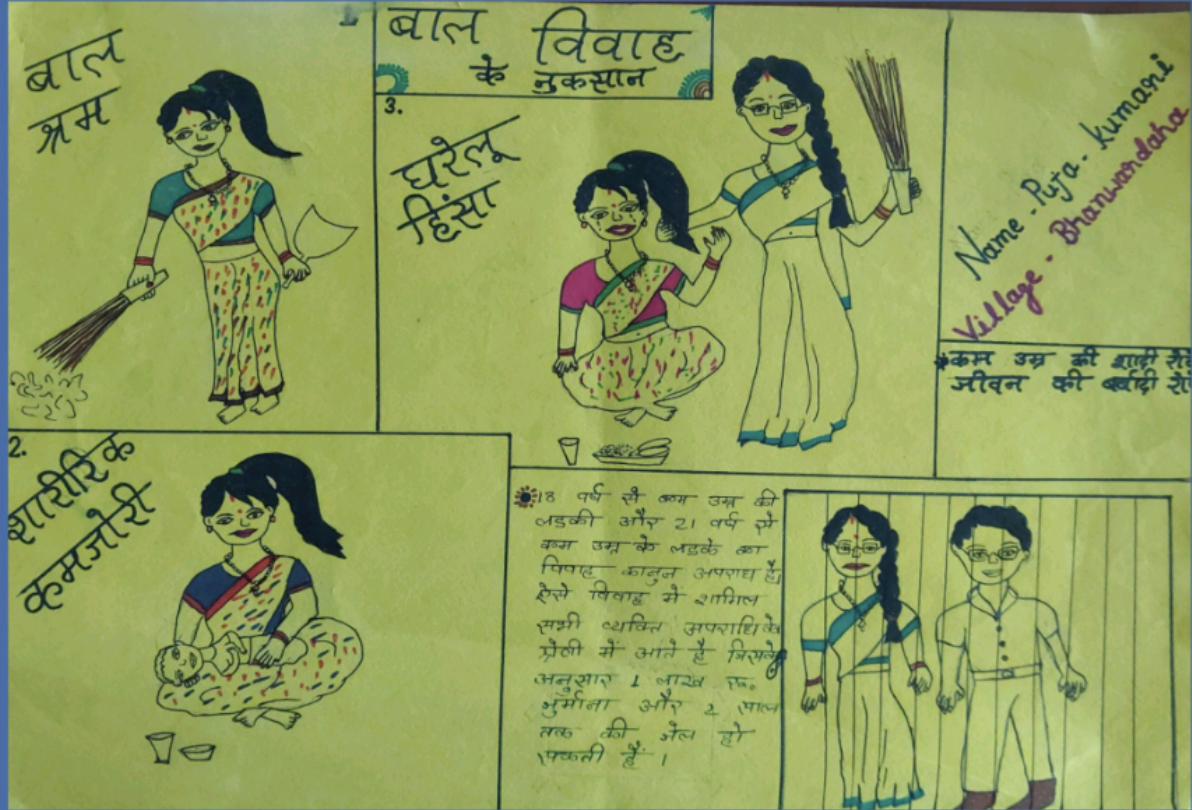 बाल विवाह
के नुकसान
1.
बाल
श्रम
2.
शारीरिक
कमजोरी
3.
घरेलू
हिंसा
Name - Puja - kumari
Village - Bhanwardaha
कम उम्र की शादी
जीवन की बर्बादी
18 वर्ष से कम उम्र की
लडकी और 21 वर्ष से
कम उम्र के लडके का
विवाह कानुन अपराध है।
ऐसे विवाह में शामिल
सभी व्यक्ति अपराधि के
श्रेणी में आते है जिसके
अनुसार 1 लाख रू.
जुर्माना और 2 साल
तक की जेल हो
सकती हैं ।